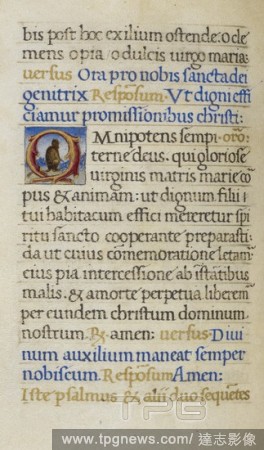 bis post hoc exilium ostende: o cle
mens o pia o dulcis uirgo maria:
uersus Ora pro nobis sancta dei
genitrix Resposum. Vt digni effi
ciamur promissionibus christi:
OMnipotens sempi- oro:
terne deus. qui gloriose
uirginis matris marie co
pus & animam: ut dignum filii
tui habitaculum effici mereretur spi
ritu sancto cooperante preparasti:
da ut cuius comemoratione letam
eius pia intercessione ab istantibus
malis. & a morte perpetua liberem
per eundem christum dominum
nostrum. R. amen: uersus. Diui
num auxilium maneat semper
nobiscum. Resposum Amen:
Iste psalmus & alii duo sequetes
TPG
www.tpgnews.com / 達志影像